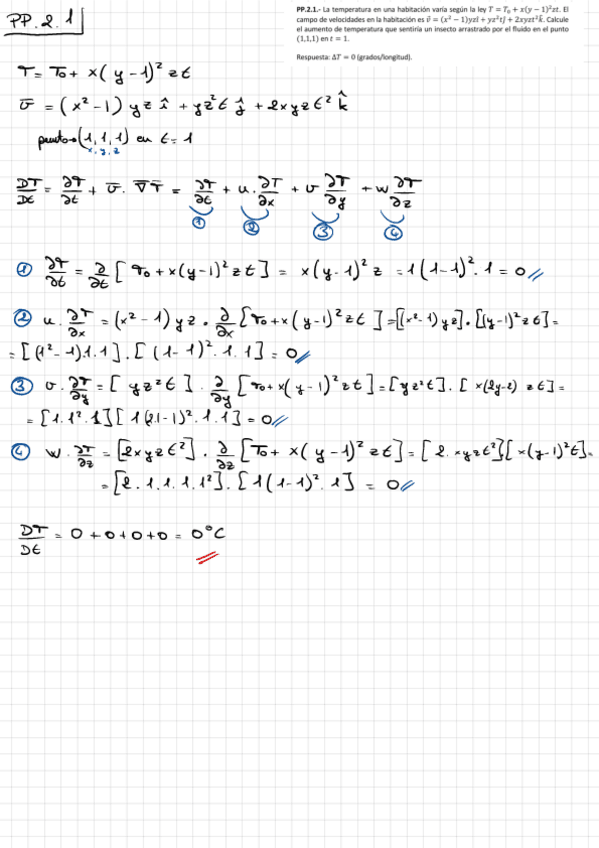 PP.2.1
PP.2.1.- La temperatura en una habitación varía según la ley T = T₀ + x(y − 1)²zt. El
campo de velocidades en la habitación es v⃗ = (x² − 1)yzî + yz²tĵ + 2xyzt²k̂. Calcule
el aumento de temperatura que sentiría un insecto arrastrado por el fluido en el punto
(1,1,1) en t = 1.
Respuesta: ΔT = 0 (grados/longitud).
T = T₀ + x(y-1)² zt
v̅ = (x²-1) yz î + yz²t ĵ + 2xyzt² k̂
punto→(1,1,1) en t=1
x,y,z
DT/Dt = ∂T/∂t + v̅ · ∇̅T̅ = ∂T/∂t + u·∂T/∂x + v ∂T/∂y + w ∂T/∂z
① ② ③ ④
① ∂T/∂t = ∂/∂t [T₀ + x(y-1)² zt] = x(y-1)² z = 1(1-1)²·1 = 0
② u·∂T/∂x = (x²-1) yz · ∂/∂x [T₀ + x(y-1)² zt] = [(x²-1) yz]·[(y-1)² zt] =
= [(1²-1)·1·1]·[(1-1)²·1·1] = 0
③ v·∂T/∂y = [yz²t]·∂/∂y [T₀ + x(y-1)² zt] = [yz²t]·[x(2y-2) zt] =
= [1·1²·1][1(2·1-1)²·1·1] = 0
④ w·∂T/∂z = [2xyzt²]·∂/∂z [T₀ + x(y-1)² zt] = [2·xyzt²][x(y-1)²t] =
= [2·1·1·1·1²]·[1(1-1)²·1] = 0
DT/Dt = 0+0+0+0 = 0°C